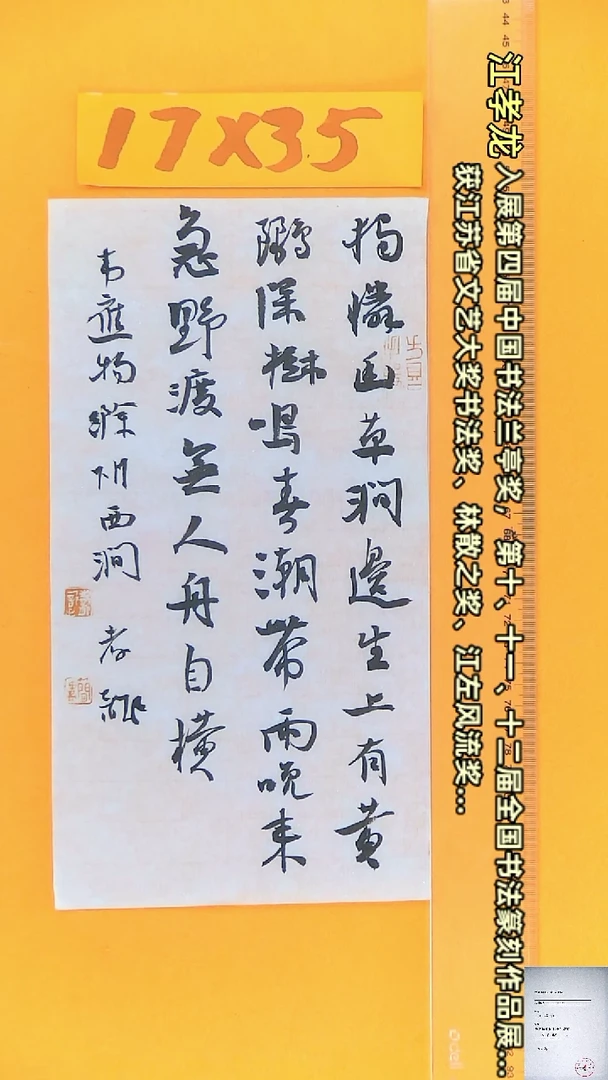 17X35
江孝龙 入展第四届中国书法兰亭奖，第十、十一、十二届全国书法篆刻作品展...
获江苏省文艺大奖书法奖、林散之奖、江左风流奖...
獨憐幽草澗邊生上有黄
鸝深樹鳴春潮帶雨晚来
急野渡無人舟自橫
韦應物滁州西澗 孝龍
deli